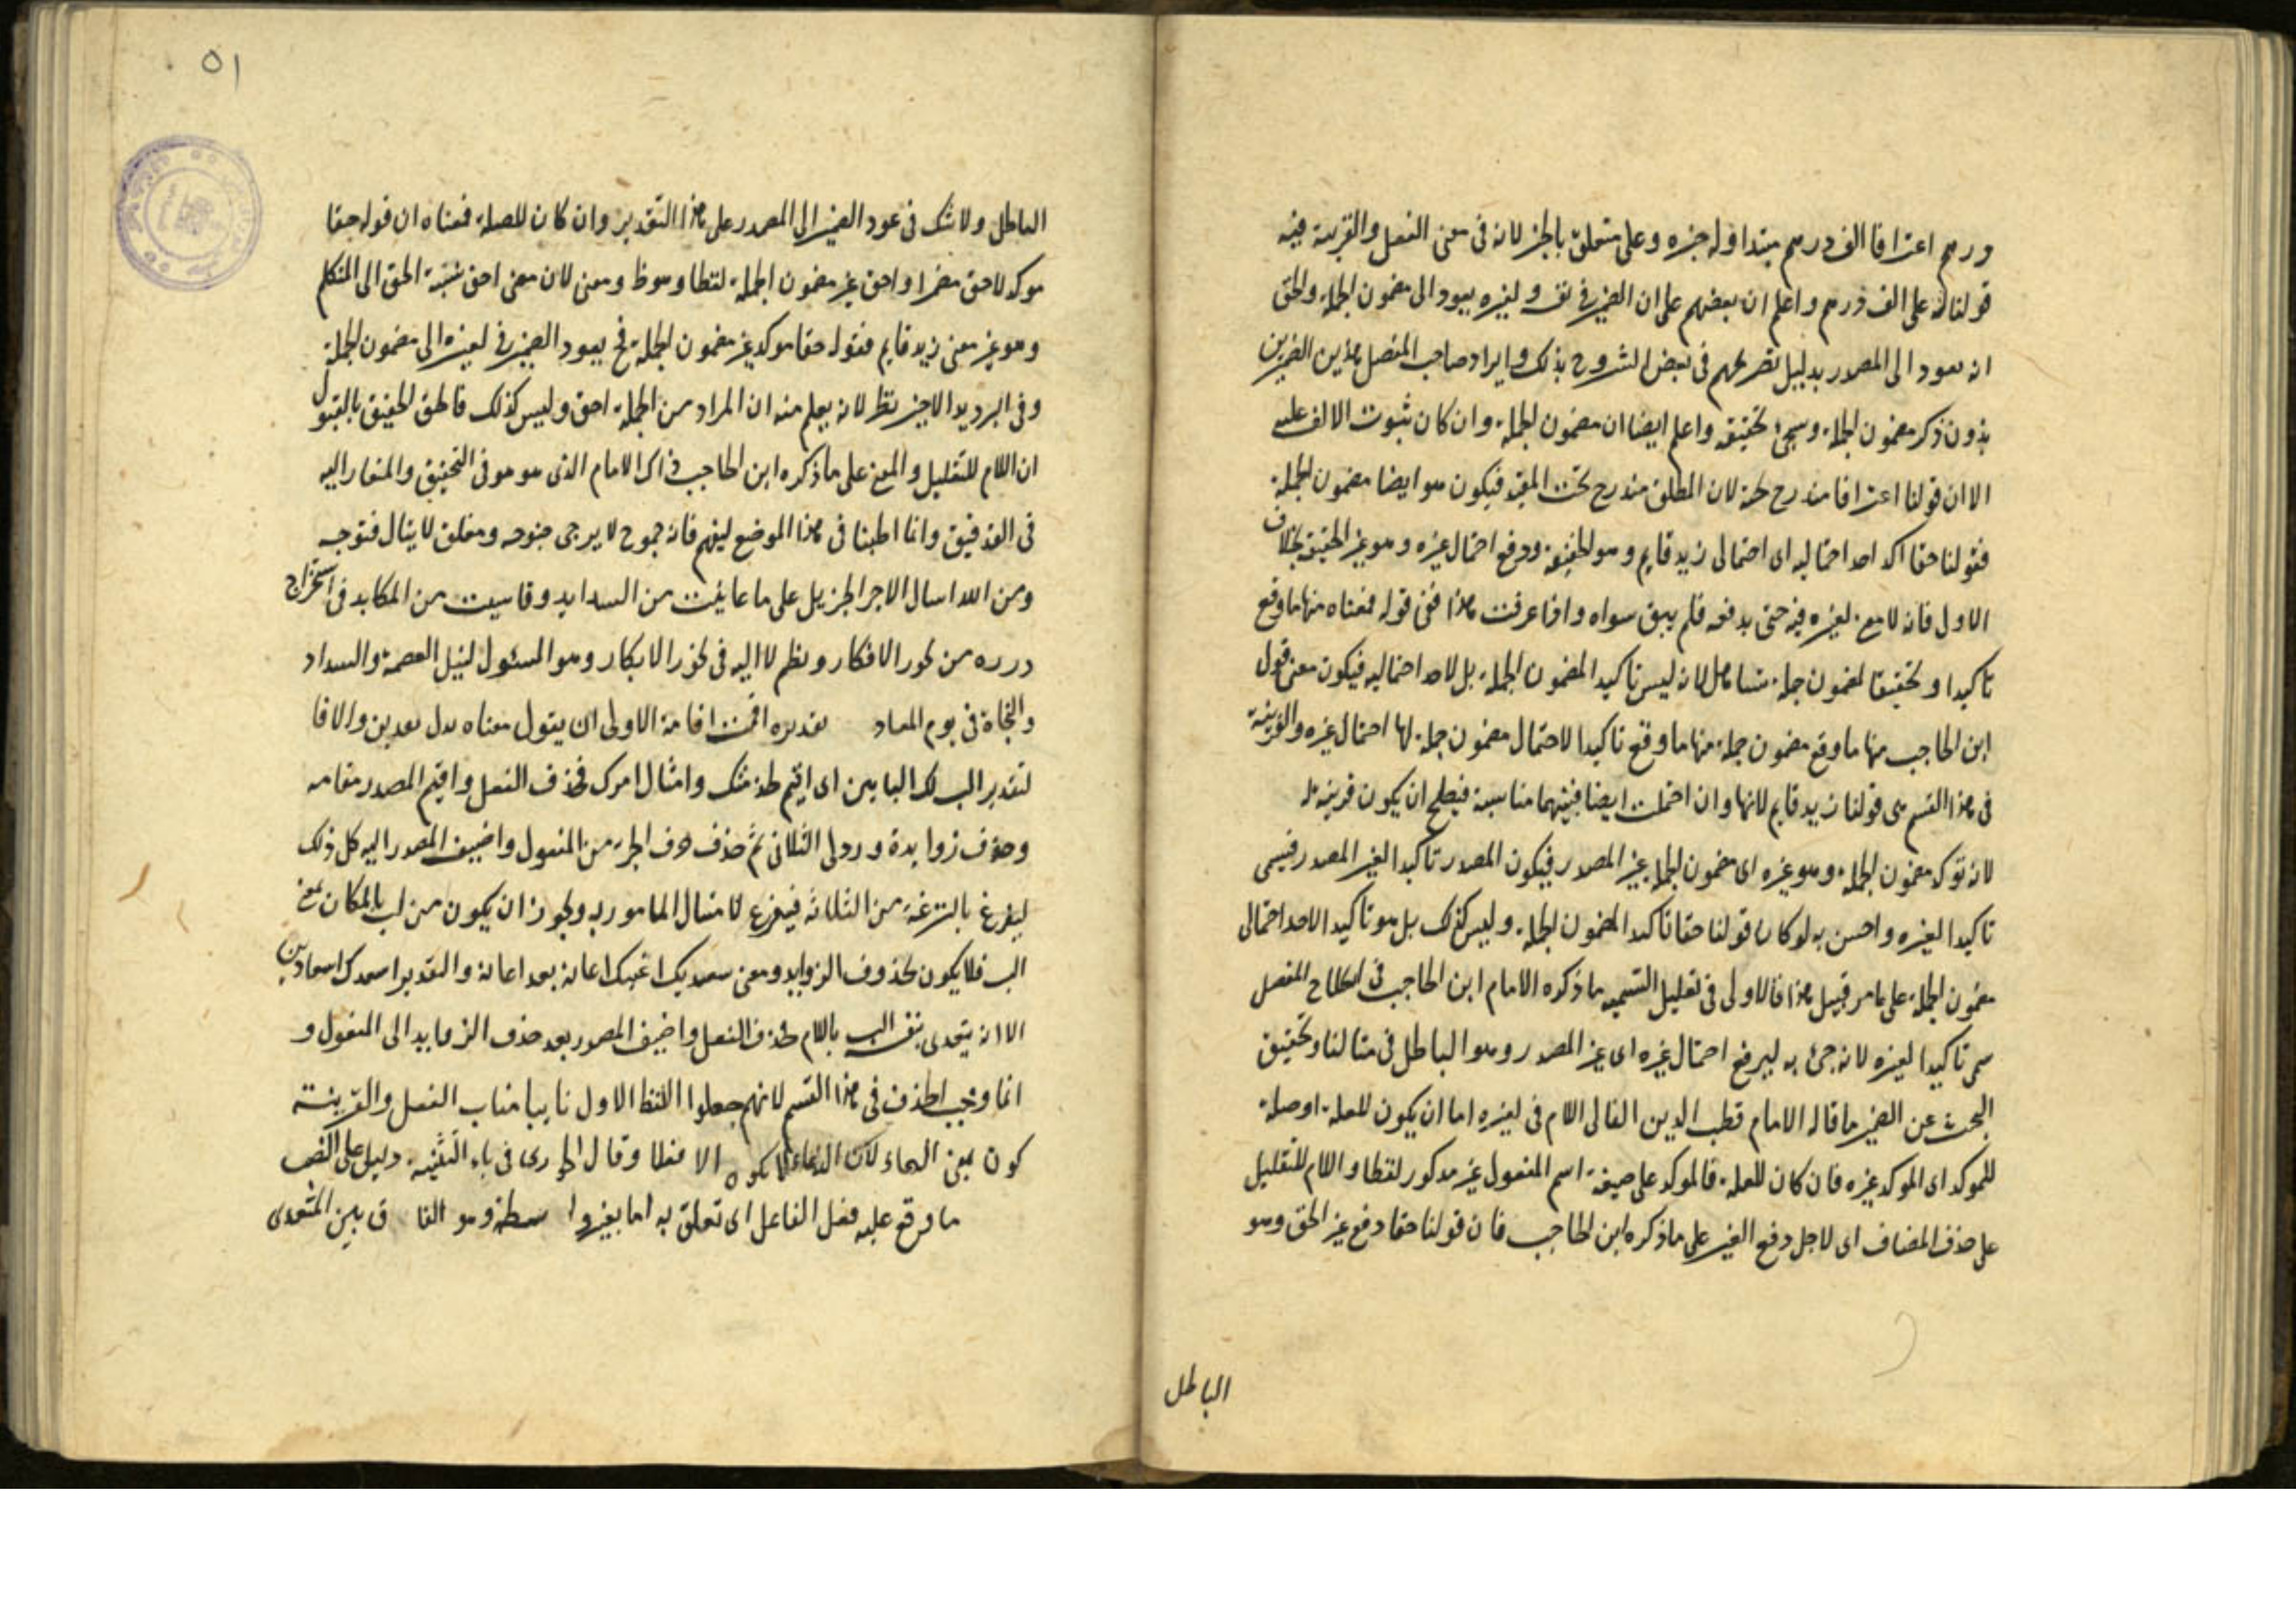 درهم اعترافا الف درهم مبتدا وله خبره وعلى متعلق بالخبر لانه فى معنى الفعل والقرينة فيه
قولنا له على الف درهم واعلم ان بعضهم على ان الضمير فى نفسه ولغيره يعود الى مضمون الجملة والحق
انه يعود الى المصدر بدليل تصريحهم فى بعض الشروح بذلك وايراد صاحب المفصل هذين الضربين
بدون ذكر مضمون الجملة وسيجئ تحقيقه واعلم ايضا ان مضمون الجملة وان كان ثبوت الالف عليه
الا ان قولنا اعترافا مندرج تحته لان المطلق مندرج تحت المقيد فيكون هو ايضا مضمون الجملة
فقولنا حقا اكد احد احتماليه اى احتمالى زيد قايم وهو الحقيقة ودفع احتمال غيره وهو غير الحقيقة بخلاف
الاول فانه لا مع لغيره فيه حتى يدفعه فلم يبق سواه واذا عرفت هذا ففى قوله فمعناه منها ما وقع
تاكيدا وتحقيقا لمضمون جملة تساهل لانه ليس تاكيدا لمضمون الجملة بل لاحد احتماليه فيكون معنى قول
ابن الحاجب منها ما وقع مضمون جملة منها ما وقع تاكيدا لاحتمال مضمون جملة لها احتمال غيره والقرينة
فى هذا القسم هى قولنا زيد قايم لانها وان احتملت ايضا فبينهما مناسبة فيصلح ان يكون قرينة له
لانه توكد مضمون الجملة وهو غيره اى مضمون الجملة غير المصدر فيكون المصدر تاكيدا لغير المصدر فيسمى
تاكيدا لغيره واحسن به لو كان قولنا حقا تاكيدا لمضمون الجملة وليس كذلك بل هو تاكيد لاحد احتمالى
مضمون الجملة على ما مر قبيل هذا فالاولى فى تعليل التسمية ما ذكره الامام ابن الحاجب فى المفصل
سمى تاكيدا لغيره لانه جئ به ليرفع احتمال غيره اى غير المصدر وهو الباطل فى مثالنا وتحقيق
البحث عن الضمير ما قاله الامام قطب الدين الفالى اللام فى لغيره اما ان يكون للعلة او صلة
للموكد اى الموكد غيره فان كان للعلة فالموكد على صيغة اسم المفعول غير مذكور لفظا واللام للتعليل
على حذف المضاف اى لاجل دفع الغير على ما ذكره ابن الحاجب فان قولنا حقا دفع غير الحق وهو
الباطل
٥١
الباطل ولا شك فى عود الضمير الى المصدر على هذا التقدير وان كان للصلة فمعناه ان قوله حقا
موكد لاحق مضمرا واحق غير مضمون الجملة لفظا وهو ظ ومعنى لان معنى احق نسبة الحق الى المتكلم
وهو غير معنى زيد قايم فقوله حقا موكد غير مضمون الجملة فح يعود الضمير فى لغيره الى مضمون الجملة
وفى الترديد الاخير نظر لانه يعلم منه ان المراد من الجملة احق وليس كذلك فالحق الحقيق بالقبول
ان اللام للتعليل والمعنى على ما ذكره ابن الحاجب ذاك الامام الذى هو هو فى التحقيق والمشار اليه
فى التدقيق وانما اطنبنا فى هذا الموضع ليفهم فانه جموح لا يرجى جنوحه ومغلق لا ينال فتوحه
ومن الله اسال الاجر الجزيل على ما عانيت من الشدايد وقاسيت من المكابد فى استخراج
درره من بحور الافكار ونظم لااليه فى نحور الابكار وهو المسئول لنيل العصمة والسداد
والنجاة فى يوم المعاد تقديره اقمت اقامة الاولى ان يقول معناه بدل
لتقدير الب لك البابين اى اقيم لخدمتك وامتثال امرك فحذف الفعل واقيم المصدر مقامه
وحذف زوايده ورد الى الثلاثى ثم حذف حرف الجر من المفعول واضيف المصدر اليه كل ذلك
ليفرغ بالسرعة من الثلاثة فيفرغ لامتثال المامور به ويجوز ان يكون من لب بالمكان بمعنى
الب فلا يكون محذوف الزوايد ومعنى سعديك اعينك اعانة بعد اعانة والتقدير اسعدك اسعادين
الا انه يتعدى بنفسه الب باللام فحذف الفعل واضيف المصدر بعد حذف الزوايد الى المفعول و
انما وجب الحذف فى هذا القسم لانهم جعلوا اللفظ الاول نايبا مناب الفعل والقرينة
كون بمعنى الدعاء لان الدعاء لا يكون الا وقال فى باء التثنية دليل على النصب
ما وقع عليه فعل الفاعل اى تعلق به اما بغير واسطة وهو بين المتعدى